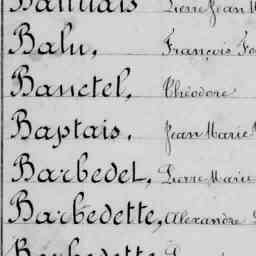 Balu, François
Banctel, Théodore
Baptais, Jean Marie
Barbedet, Pierre Marie
Barbedette, Alexandre
Barbedette